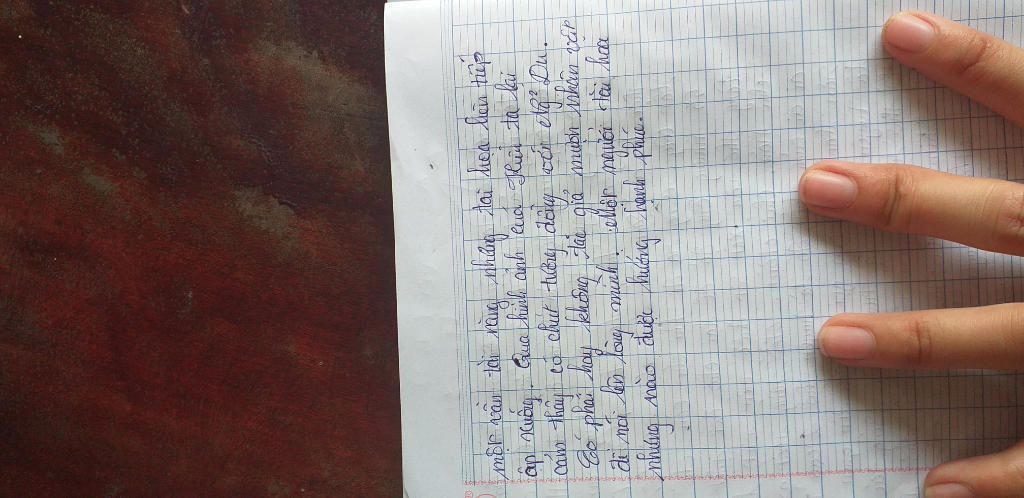 một văn tài năng nhưng tai họa liên tiếp
ập xuống. Qua hình ảnh của Thúy ta lại
cảm thấy có chút tương đồng với Ng² Du.
Có phải hay không tác giả mượn nhân vật
để nói lên lòng mình. Một người tài hoa
nhưng nào được hưởng hạnh phúc.